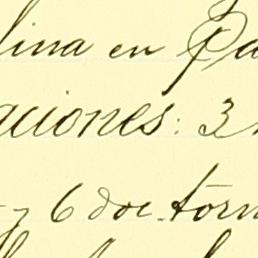 lina en Pa
aciones: 3
y 6 doc. torn